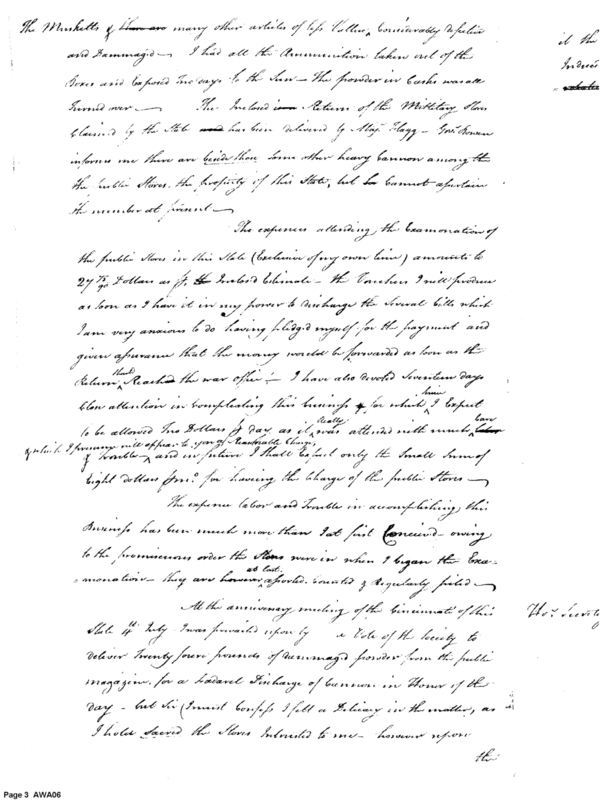 The Musketts & many other articles of less Value, Considerably defective
and Dammaged — I had all the Ammunition taken out of the
Boxes and Exposed Two days to the Sun — The powder in Casks was all
turned over — The Inclosed Return of the Millitary Stores
Claimed by the State has been delivered by Majr. Flagg — Govr. Bowen
informs me there are beside those some other heavy Cannon among the
the public Stores, the property of this State, but Cannot assertain
the number at present —
The expences attending the Examonation of
the public Stores in this State (Exclusive of my own time) amounts to
27 75/90 Dollars as pr. the Inclosed Estimate — the Vouchers I will produce
as soon as I have it in my power to discharge the Several bills which
I am very anxious to do having pledged myself for the payment and
given assurance that the money would be forwarded as soon as the
Return should Reach the war office — I have also devoted Seventeen days
Close attention in Compleating this business & for which time I Expect
to be allowed Two Dollars pr day as it really was attended with much Care
& which I presume will appear to you a Reasonable Charge,
& Trouble and in future I shall Expect only the Small Sum of
Eight dollars pr mo. for having the Charge of the public Stores —
The expence labor and Trouble in accomplishing this
Business has been much more than I at first Conceived — owing
to the promiscuous order the Stores were in when I began the Exa-
monation — they are however at last assorted. Counted & Regularly piled —
At the anniversary meeting of the Cincinnati of this
State 4th July I was prevailed upon by a Vote of the Society to
deliver Twenty four pounds of dammaged powder from the public
magazine, for a Federal Discharge of Cannon in Honor of the
day — but Sir (I must Confess I felt a Delicacy in the matter, as
I hold Sacred the Stores Intrusted to me — however upon
the
it the
Page 3 AWA06